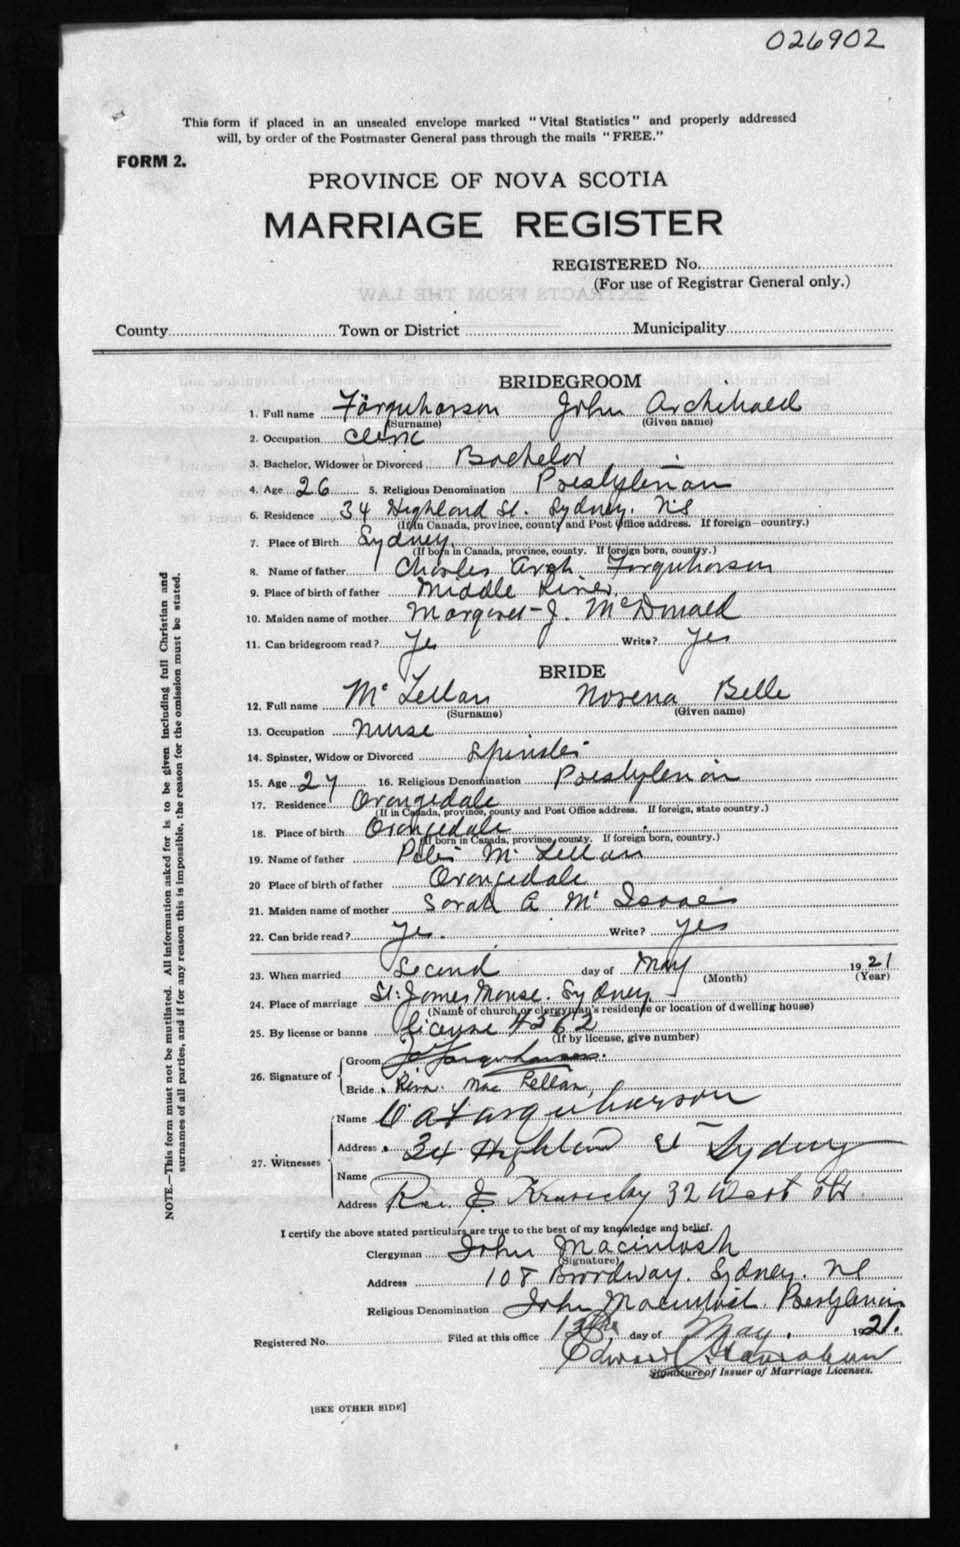 026902
This form if placed in an unsealed envelope marked "Vital Statistics" and properly addressed
will, by order of the Postmaster General pass through the mails "FREE."
FORM 2.
PROVINCE OF NOVA SCOTIA
MARRIAGE REGISTER
REGISTERED No.
(For use of Registrar General only.)
EXTRACTS FROM THE LAW
County Town or District Municipality
BRIDEGROOM
1. Full name Farquharson John Archibald
(Surname) (Given name)
2. Occupation Cleric
3. Bachelor, Widower or Divorced Bachelor
4. Age 26 5. Religious Denomination Presbyterian
6. Residence 34 Highland St. Sydney. NS
(If in Canada, province, county and Post Office address. If foreign—country.)
7. Place of Birth Sydney
(If born in Canada, province, county. If foreign born, country.)
8. Name of father Charles Arch Farquharson
9. Place of birth of father Middle River
10. Maiden name of mother Margaret J. McDonald
11. Can bridegroom read? Yes Write? Yes
BRIDE
12. Full name McLellan Norena Belle
(Surname) (Given name)
13. Occupation Nurse
14. Spinster, Widow or Divorced Spinster
15. Age 27 16. Religious Denomination Presbyterian
17. Residence Orangedale
(If in Canada, province, county and Post Office address. If foreign, state country.)
18. Place of birth Orangedale
(If born in Canada, province, county. If foreign born, country.)
19. Name of father Peter McLellan
20 Place of birth of father Orangedale
21. Maiden name of mother Sarah A McIsaac
22. Can bride read? Yes. Write? Yes
23. When married Second day of May 1921
(Month) (Year)
24. Place of marriage St. James Manse. Sydney
(Name of church or clergyman's residence or location of dwelling house)
25. By license or banns license 4362
(If by license, give number)
26. Signature of Groom Farquharson.
Bride Rena MacLellan
27. Witnesses Name Farquharson
Address 34 Highland St Sydney
Name
Address 32 West St.
I certify the above stated particulars are true to the best of my knowledge and belief.
Clergyman John Macintosh
(Signature)
Address 108 Broadway. Sydney. NS
Religious Denomination John Macintosh. Presbyterian
Registered No. Filed at this office 13th day of May. 1921.
Edward
Signature of Issuer of Marriage Licenses.
[SEE OTHER SIDE]
NOTE.—This form must not be mutilated. All information asked for is to be given including full Christian and
surnames of all parties, and if for any reason this is impossible, the reason for the omission must be stated.